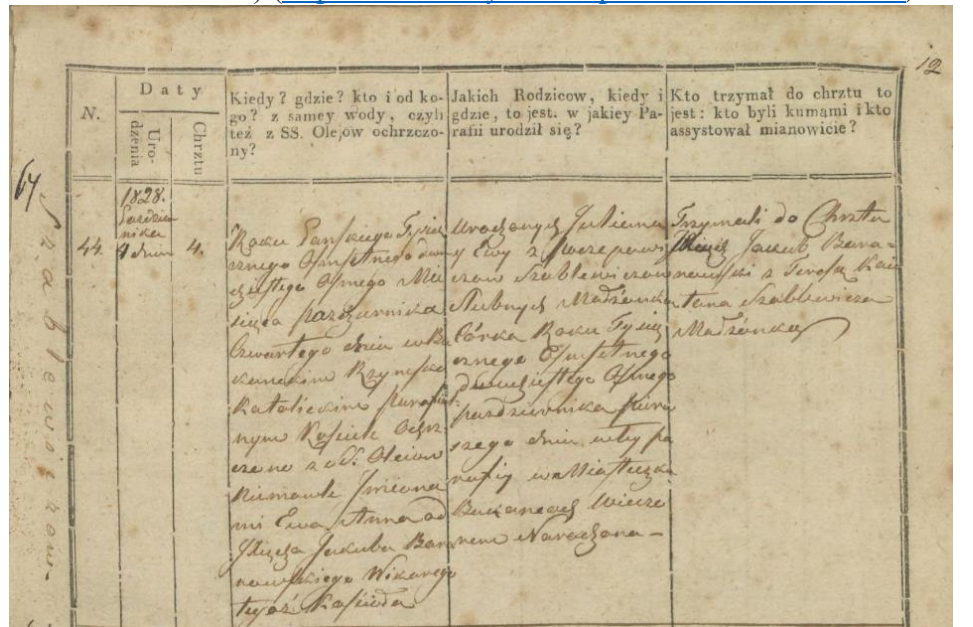 12
N.
Daty
Urodzenia
Chrztu
Kiedy? gdzie? kto i od ko-
go? z samey wody, czyli
też z SS. Olejow ochrzczo-
ny?
Jakich Rodzicow, kiedy i
gdzie, to jest. w jakiey Pa-
rafii urodził się?
Kto trzymał do chrztu to
jest: kto byli kumami i kto
assystował mianowicie?
64
Szablewiczow.
44.
1828.
Pazdzier
nika
1 dnia
4.
Roku Pańskiego Tysią
cznego Osmsetnego dwu
dziestego Osmego Mie
siąca pazdziernika
Czwartego dnia w Ba
kanskim Rzymsko
Katolickim Parafial
nym Kościele Ochrz
czono z SS. Oleiow
Niemowle Imiona
mi Ewa Anna od
Xiędza Jakuba Bar
nowskiego Wikarego
tegoż Kościoła
Urodzonych Juliana
y Ewy z
Szablewiczow
Slubnych Małżonkow
Córka Roku Tysią
cznego Osmsetnego
dwudziestego Osmego
pazdziernika pierw
szego dnia w tey pa
rafiy w Miasteczku
Bakanach Wieczo
rem Narodzona –
Trzymali do Chrztu
Xiądz Jakub Bara-
nowski z Teresą Kaie
tana Szablewicza
Małżonką